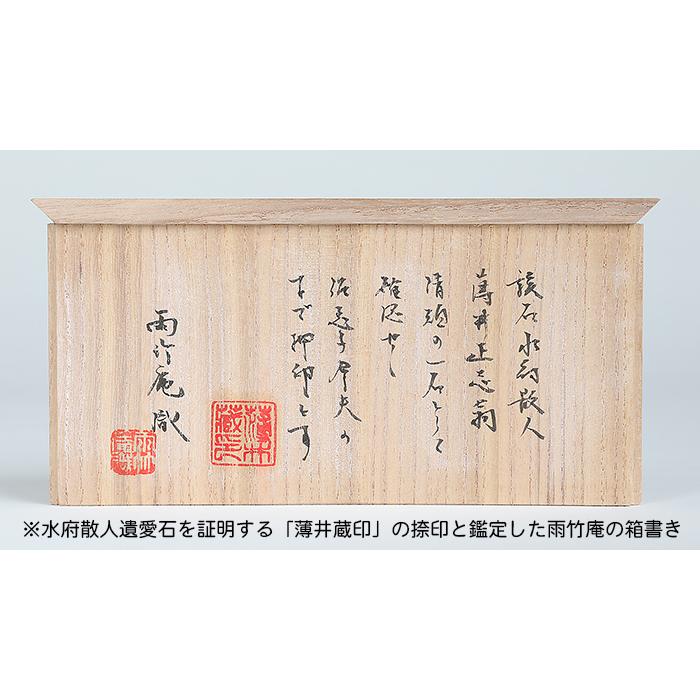 該石水府散人
薄井正志翁
清翫の一石として
確認せし
証
まで押印す
雨竹庵
薄井蔵印
※水府散人遺愛石を証明する「薄井蔵印」の捺印と鑑定した雨竹庵の箱書き